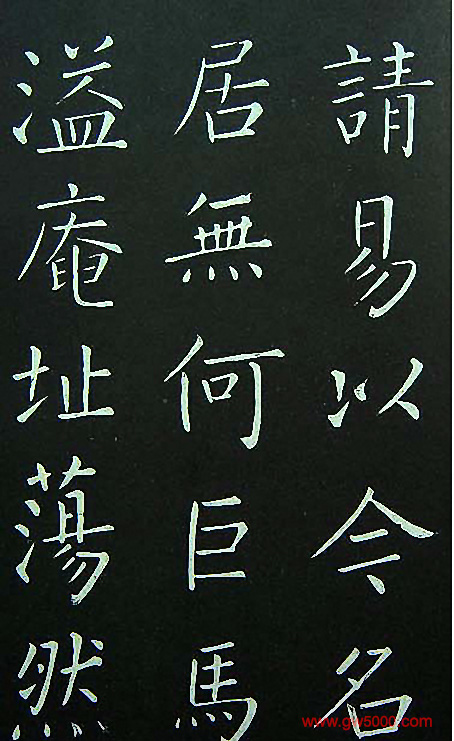 請易以今名
居無何巨馬
溢庵址蕩然
www.gw5000.com